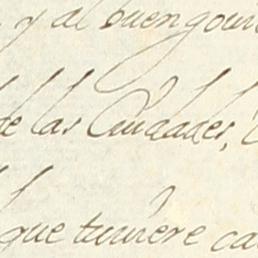 y al buen
de las Ciudades,
que tuviere